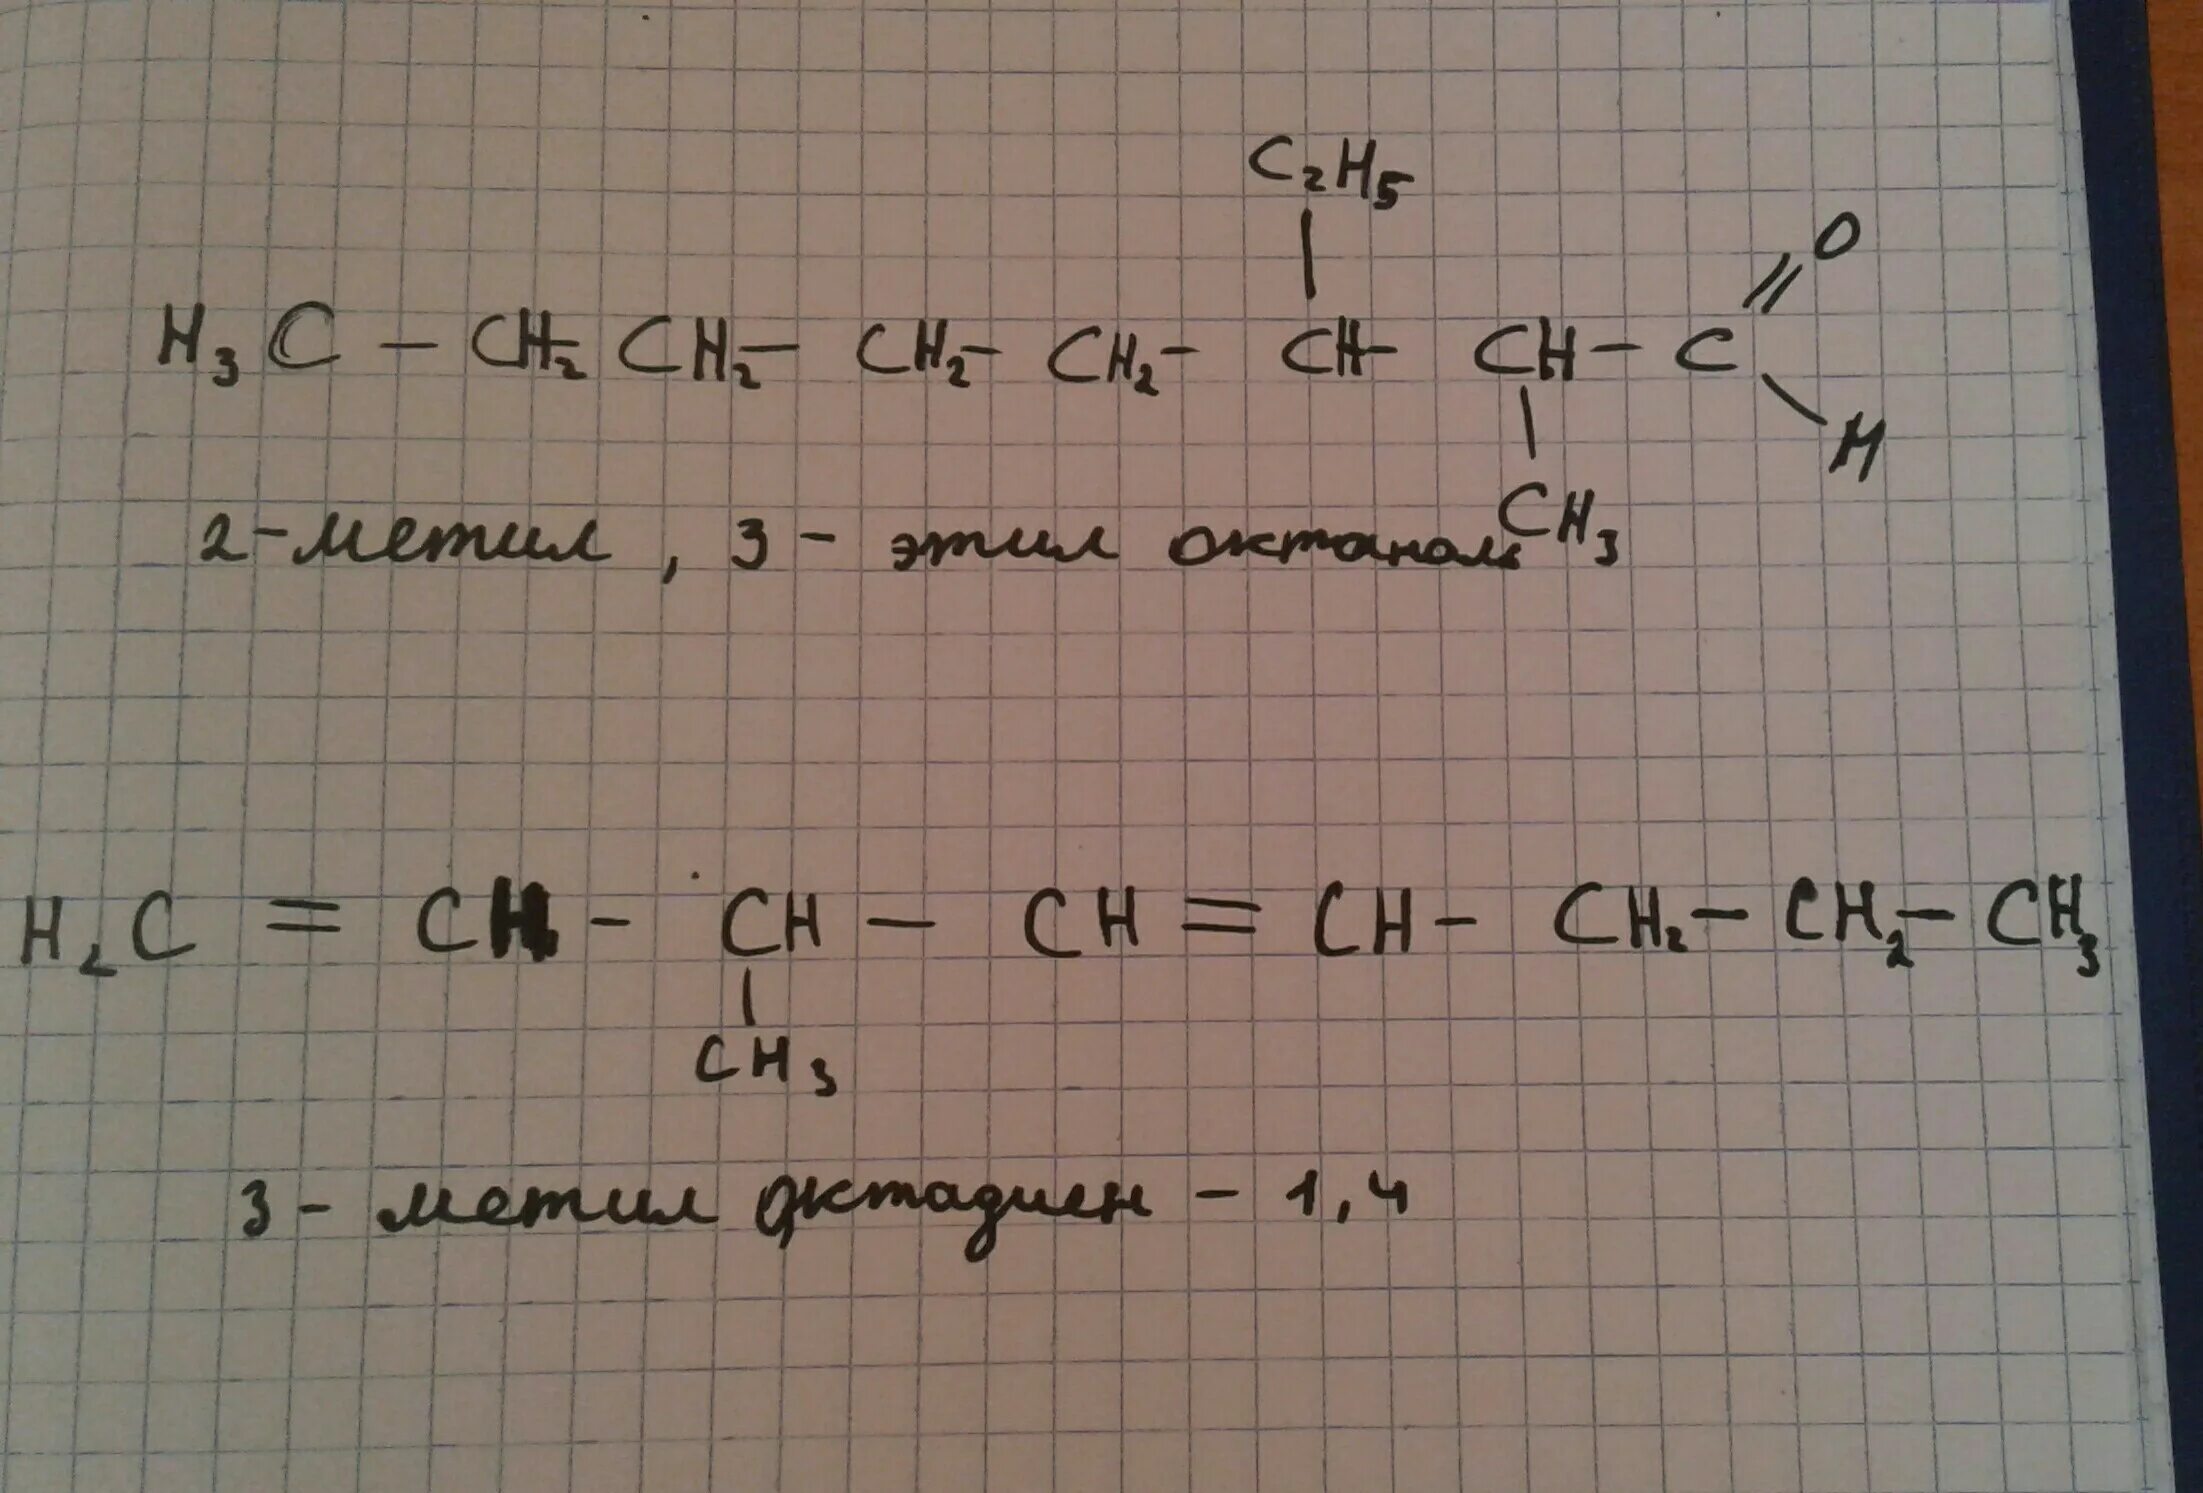 C₂H₅
O
H₃C – CH₂ CH₂ – CH₂ – CH₂ – CH – CH – C
H
CH₃
2-метил, 3 - этил октаналь
H₂C = CH - CH – CH = CH – CH₂ – CH₂ – CH₃
CH₃
3 - метил октадиен - 1,4